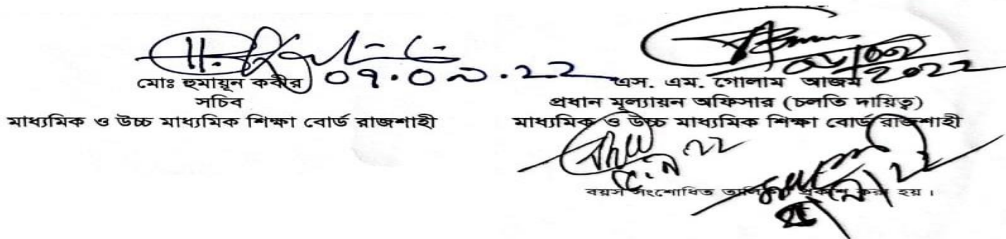 মোঃ হুমায়ুন কবীর
সচিব
মাধ্যমিক ও উচ্চ মাধ্যমিক শিক্ষা বোর্ড রাজশাহী
এস. এম. গোলাম আজম
২০২২
প্রধান মূল্যায়ন অফিসার (চলতি দায়িত্ব)
মাধ্যমিক ও উচ্চ মাধ্যমিক শিক্ষা বোর্ড রাজশাহী
বয়স সংশোধিত তালিকা প্রকাশ করা হয়।